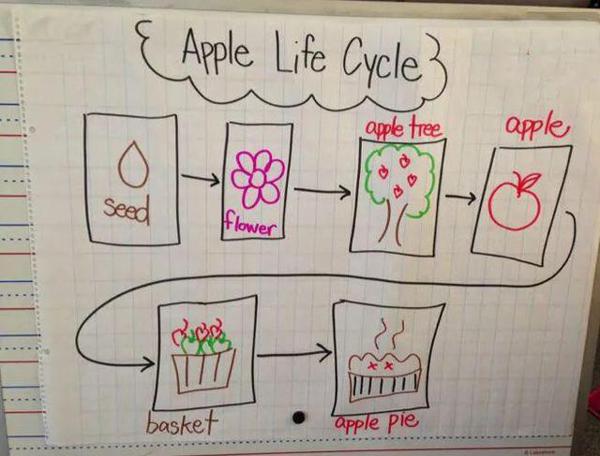 Apple Life Cycle
seed
flower
apple tree
apple
basket
apple pie